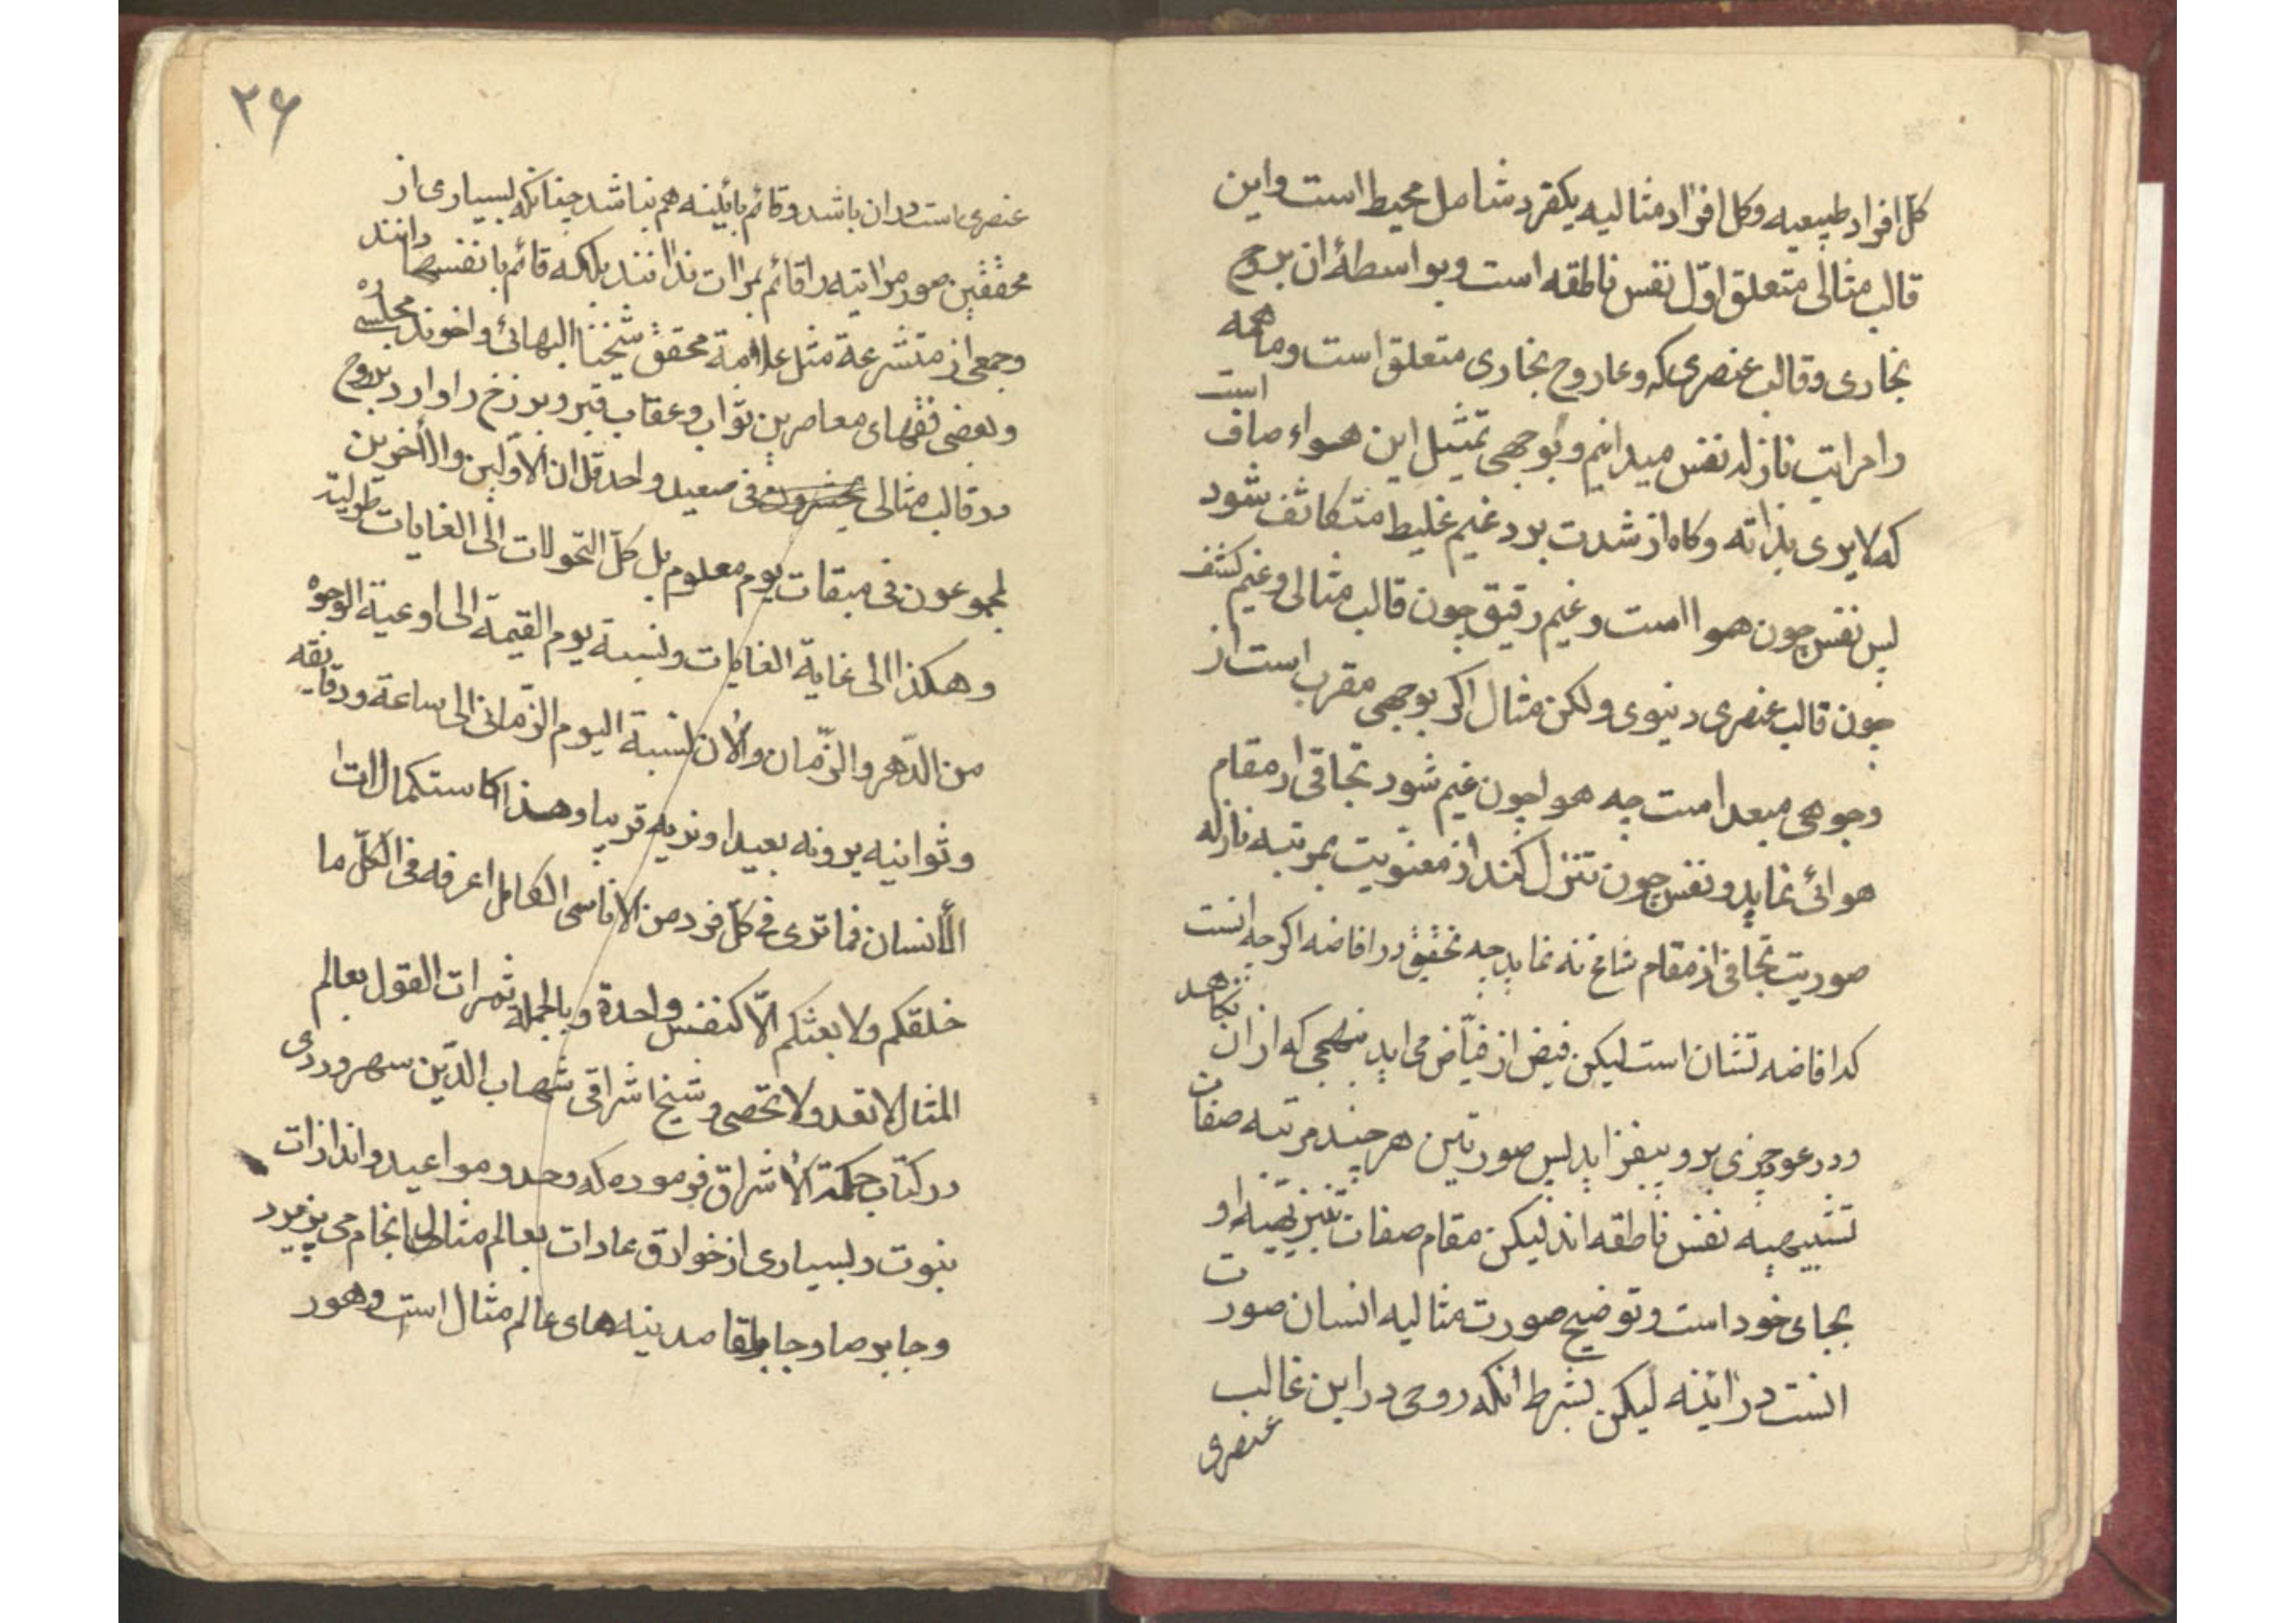 کل افراد طبیعیه وکل افراد مثالیه یکفرد شامل محیط است واین
قالب مثالی متعلق اوّل نفس ناطقه است وبواسطۀ ان بروح
بخاری وقالب عنصری که وعاء روح بخاری متعلق است وماهمه
را مراتب نازله نفس میدانیم وبوجهی تمثیل این هواء صاف است
که لایری بذاته وکاه از شدت برد غیم غلیط متکاثف شود
پس نفس چون هوا است وغیم رقیق چون قالب مثالی وغیم کثف
چون قالب عنصری دنیوی ولکن مثال اکر بوجهی مقرب است از
وجوهی مبعد است چه هوا چون غیم شود تجافی از مقام
هوائی نماید ونفس چون تنزل کند از معنویت بمرتبه نازله
صوریت تجافی از مقام شامخ نه نماید چه تحقیق در افاضه اکرچه انست
که افاضه تشان است لیکن فیض از فیّاض می اید بنهجی که از ان نکاهد
ودر عود چیزی برو بیفزاید پس صورتین هر چند مرتبه صفات
تشبیهیه نفس ناطقه اند لیکن مقام صفات تنزیهیه او
بجای خود است وتوضیح صورت مثالیه انسان صورت
انست در ائینه لیکن بشرط انکه روحی در این غالب
عنصری
۲۶
عنصری است در ان باشد وقائم بائینه هم نباشد چنانکه بسیاری از
محققین صور مراتیه را قائم بمرات ندانند بلکه قائم بانفسها دانند
وجمعی از متشرعة مثل علامة محقق شیخنا البهائی واخوند مجلسی ره
وبعضی فقهای معاصرین ثواب وعقاب قبر وبرزخ را وارد بروح
در قالب مثالی فی صعید واحد قل ان الاوّلین والأخرین
لمجموعون فی میقات یوم معلوم بل کلّ التحولات الی الغایات طولیة
وهکذا الی غایة الغایات ونسبة یوم القیمة الی اوعیة الوجوه
من الدّهر والزّمان والأن نسبة الیوم الزّمانی الی ساعة ودقایقه
وثوانیه یرونه بعیدا ونریه قریبا وهذا کاستکمالات
الأنسان فما تری فی کلّ فرد من الاناسی الکامل اعرفه فی الکلّ ما
خلقکم ولا بعثکم الّا کنفس واحدة وبالجمله ثمرات القول بعالم
المثال لا تعد ولا تحصی وشیخ اشراقی شهاب الدّین سهروردی
در کتاب حکمة الأشراق فرموده که وحد ومواعید وانذارات
نبوت وبسیاری از خوارق عادات بعالم مثالی انجام می پزیرد
وجابرصا وجابلقا مدینه های عالم مثال است وهور